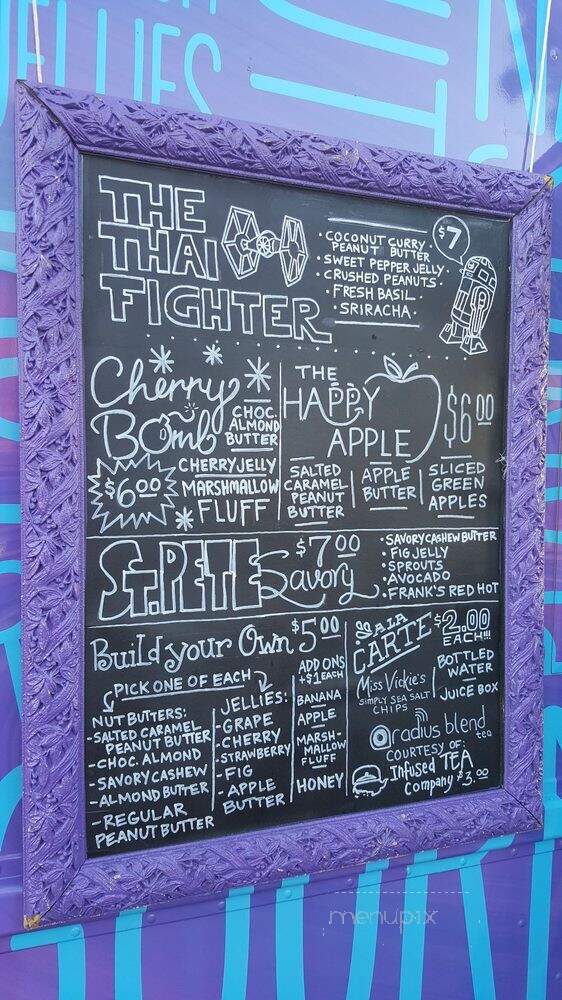 ELLIES
THE
THAI
FIGHTER
$7
• COCONUT CURRY •
PEANUT BUTTER
• SWEET PEPPER JELLY •
• CRUSHED PEANUTS •
• FRESH BASIL •
• SRIRACHA •
Cherry
Bomb
$6.00
CHOC.
ALMOND
BUTTER
CHERRY JELLY
MARSHMALLOW
FLUFF
THE
HAPPY
APPLE
$6.00
SALTED
CARAMEL
PEANUT
BUTTER
APPLE
BUTTER
SLICED
GREEN
APPLES
ST. PETE
Savory
$7.00
• SAVORY CASHEW BUTTER
• FIG JELLY
• SPROUTS
• AVOCADO
• FRANK'S RED HOT
Build your Own $5.00
PICK ONE OF EACH
NUT BUTTERS:
-SALTED CARAMEL
PEANUT BUTTER
-CHOC. ALMOND
-SAVORY CASHEW
-ALMOND BUTTER
-REGULAR
PEANUT BUTTER
JELLIES:
-GRAPE
-CHERRY
-STRAWBERRY
-FIG
-APPLE
BUTTER
ADD ONS
+$1 EACH
BANANA
APPLE
MARSH-
MALLOW
FLUFF
HONEY
A LA
CARTE
$2.00
EACH!!!
Miss Vickie's
SIMPLY SEA SALT
CHIPS
BOTTLED
WATER
JUICE BOX
radius blend
tea
COURTESY OF:
Infused TEA
Company $3.00
menupix